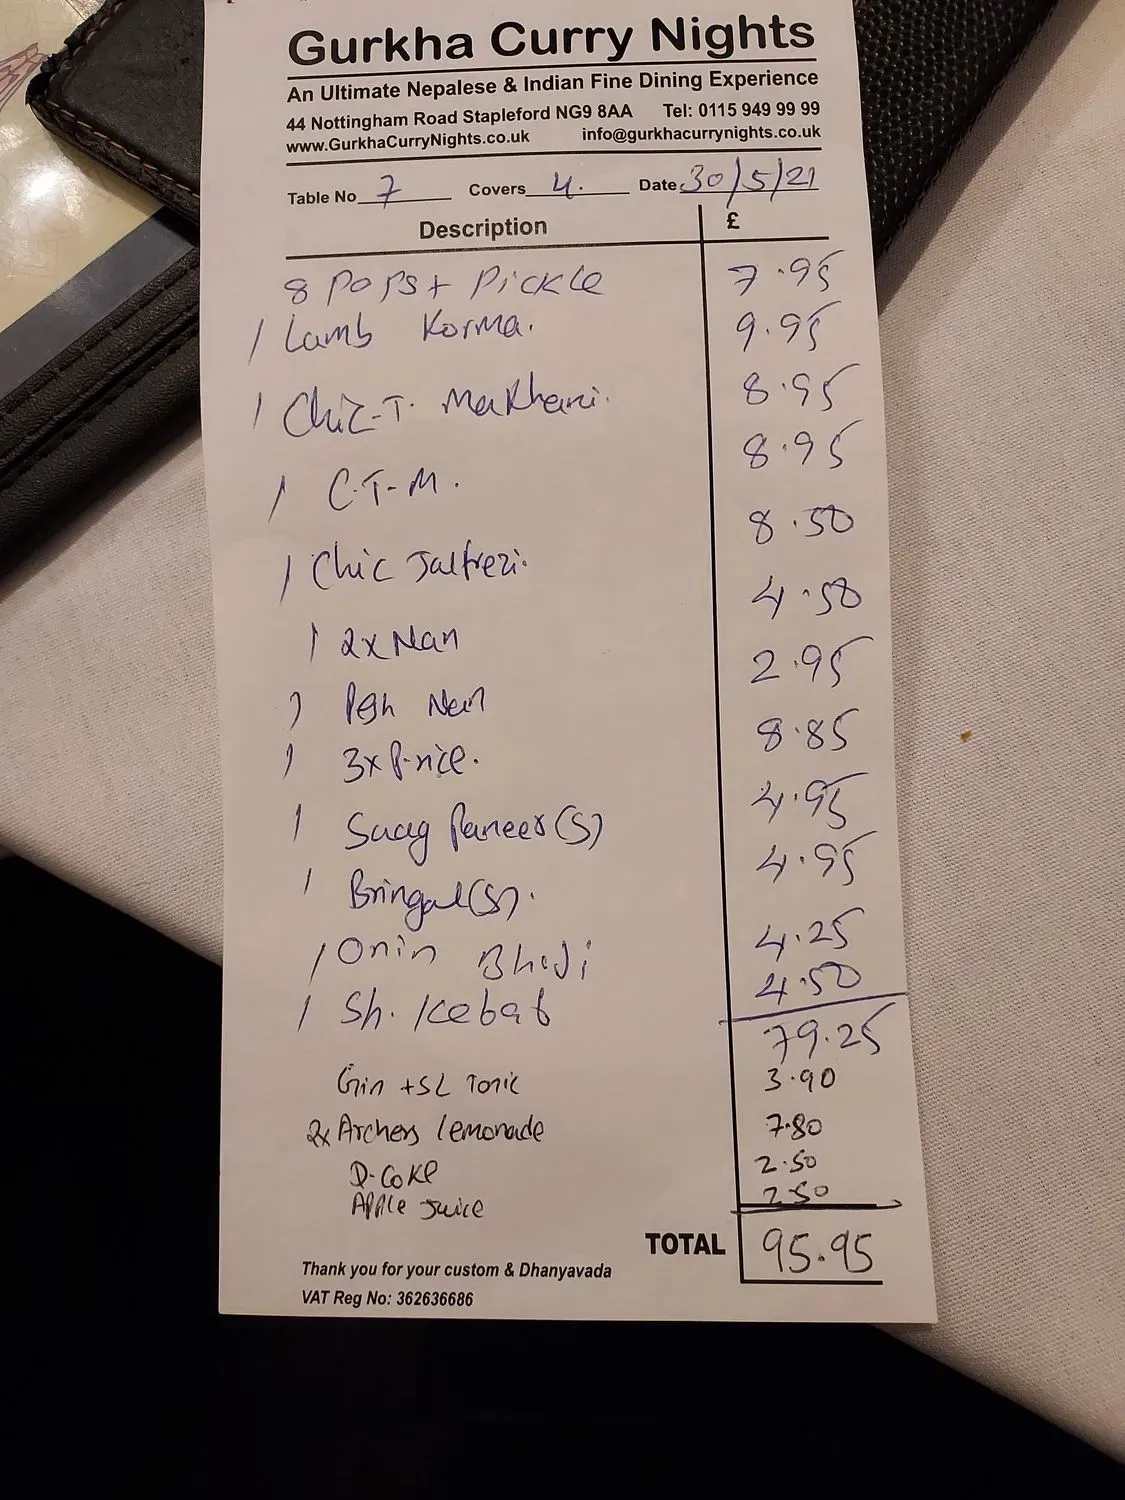 Gurkha Curry Nights
An Ultimate Nepalese & Indian Fine Dining Experience
44 Nottingham Road Stapleford NG9 8AA Tel: 0115 949 99 99
www.GurkhaCurryNights.co.uk info@gurkhacurrynights.co.uk
Table No 7 Covers 4. Date 30/5/21
Description £
8 Pops + Pickle 7.95
1 Lamb Korma. 9.95
1 Chic-T. Makhani. 8.95
1 C.T-M. 8.95
1 Chic Jalfrezi. 8.50
1 2x Nan 4.50
1 Pesh Nan 2.95
1 3x P-rice. 8.85
1 Saag Paneer (S) 4.95
1 Bringal (S). 4.95
1 Onin Bhaji 4.25
1 Sh. Kebab 4.50
79.25
Gin + SL Tonic 3.90
2x Archers lemonade 7.80
D-Coke 2.50
Apple Juice 2.50
TOTAL 95.95
Thank you for your custom & Dhanyavada
VAT Reg No: 362636686